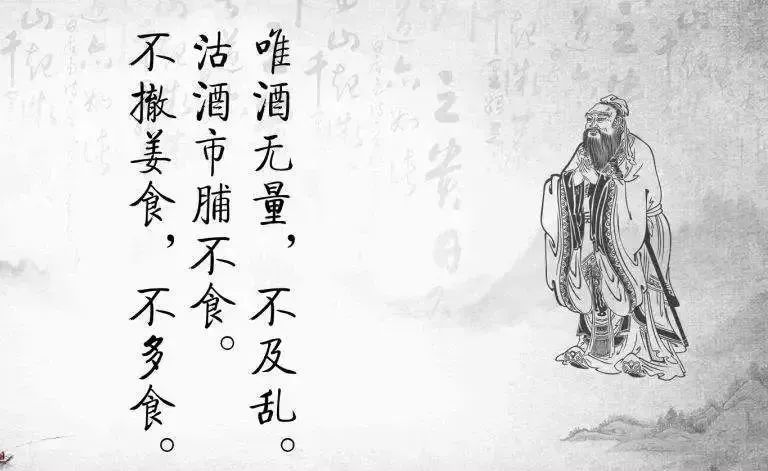 唯酒无量，不及乱。
沽酒市脯不食。
不撤姜食，不多食。